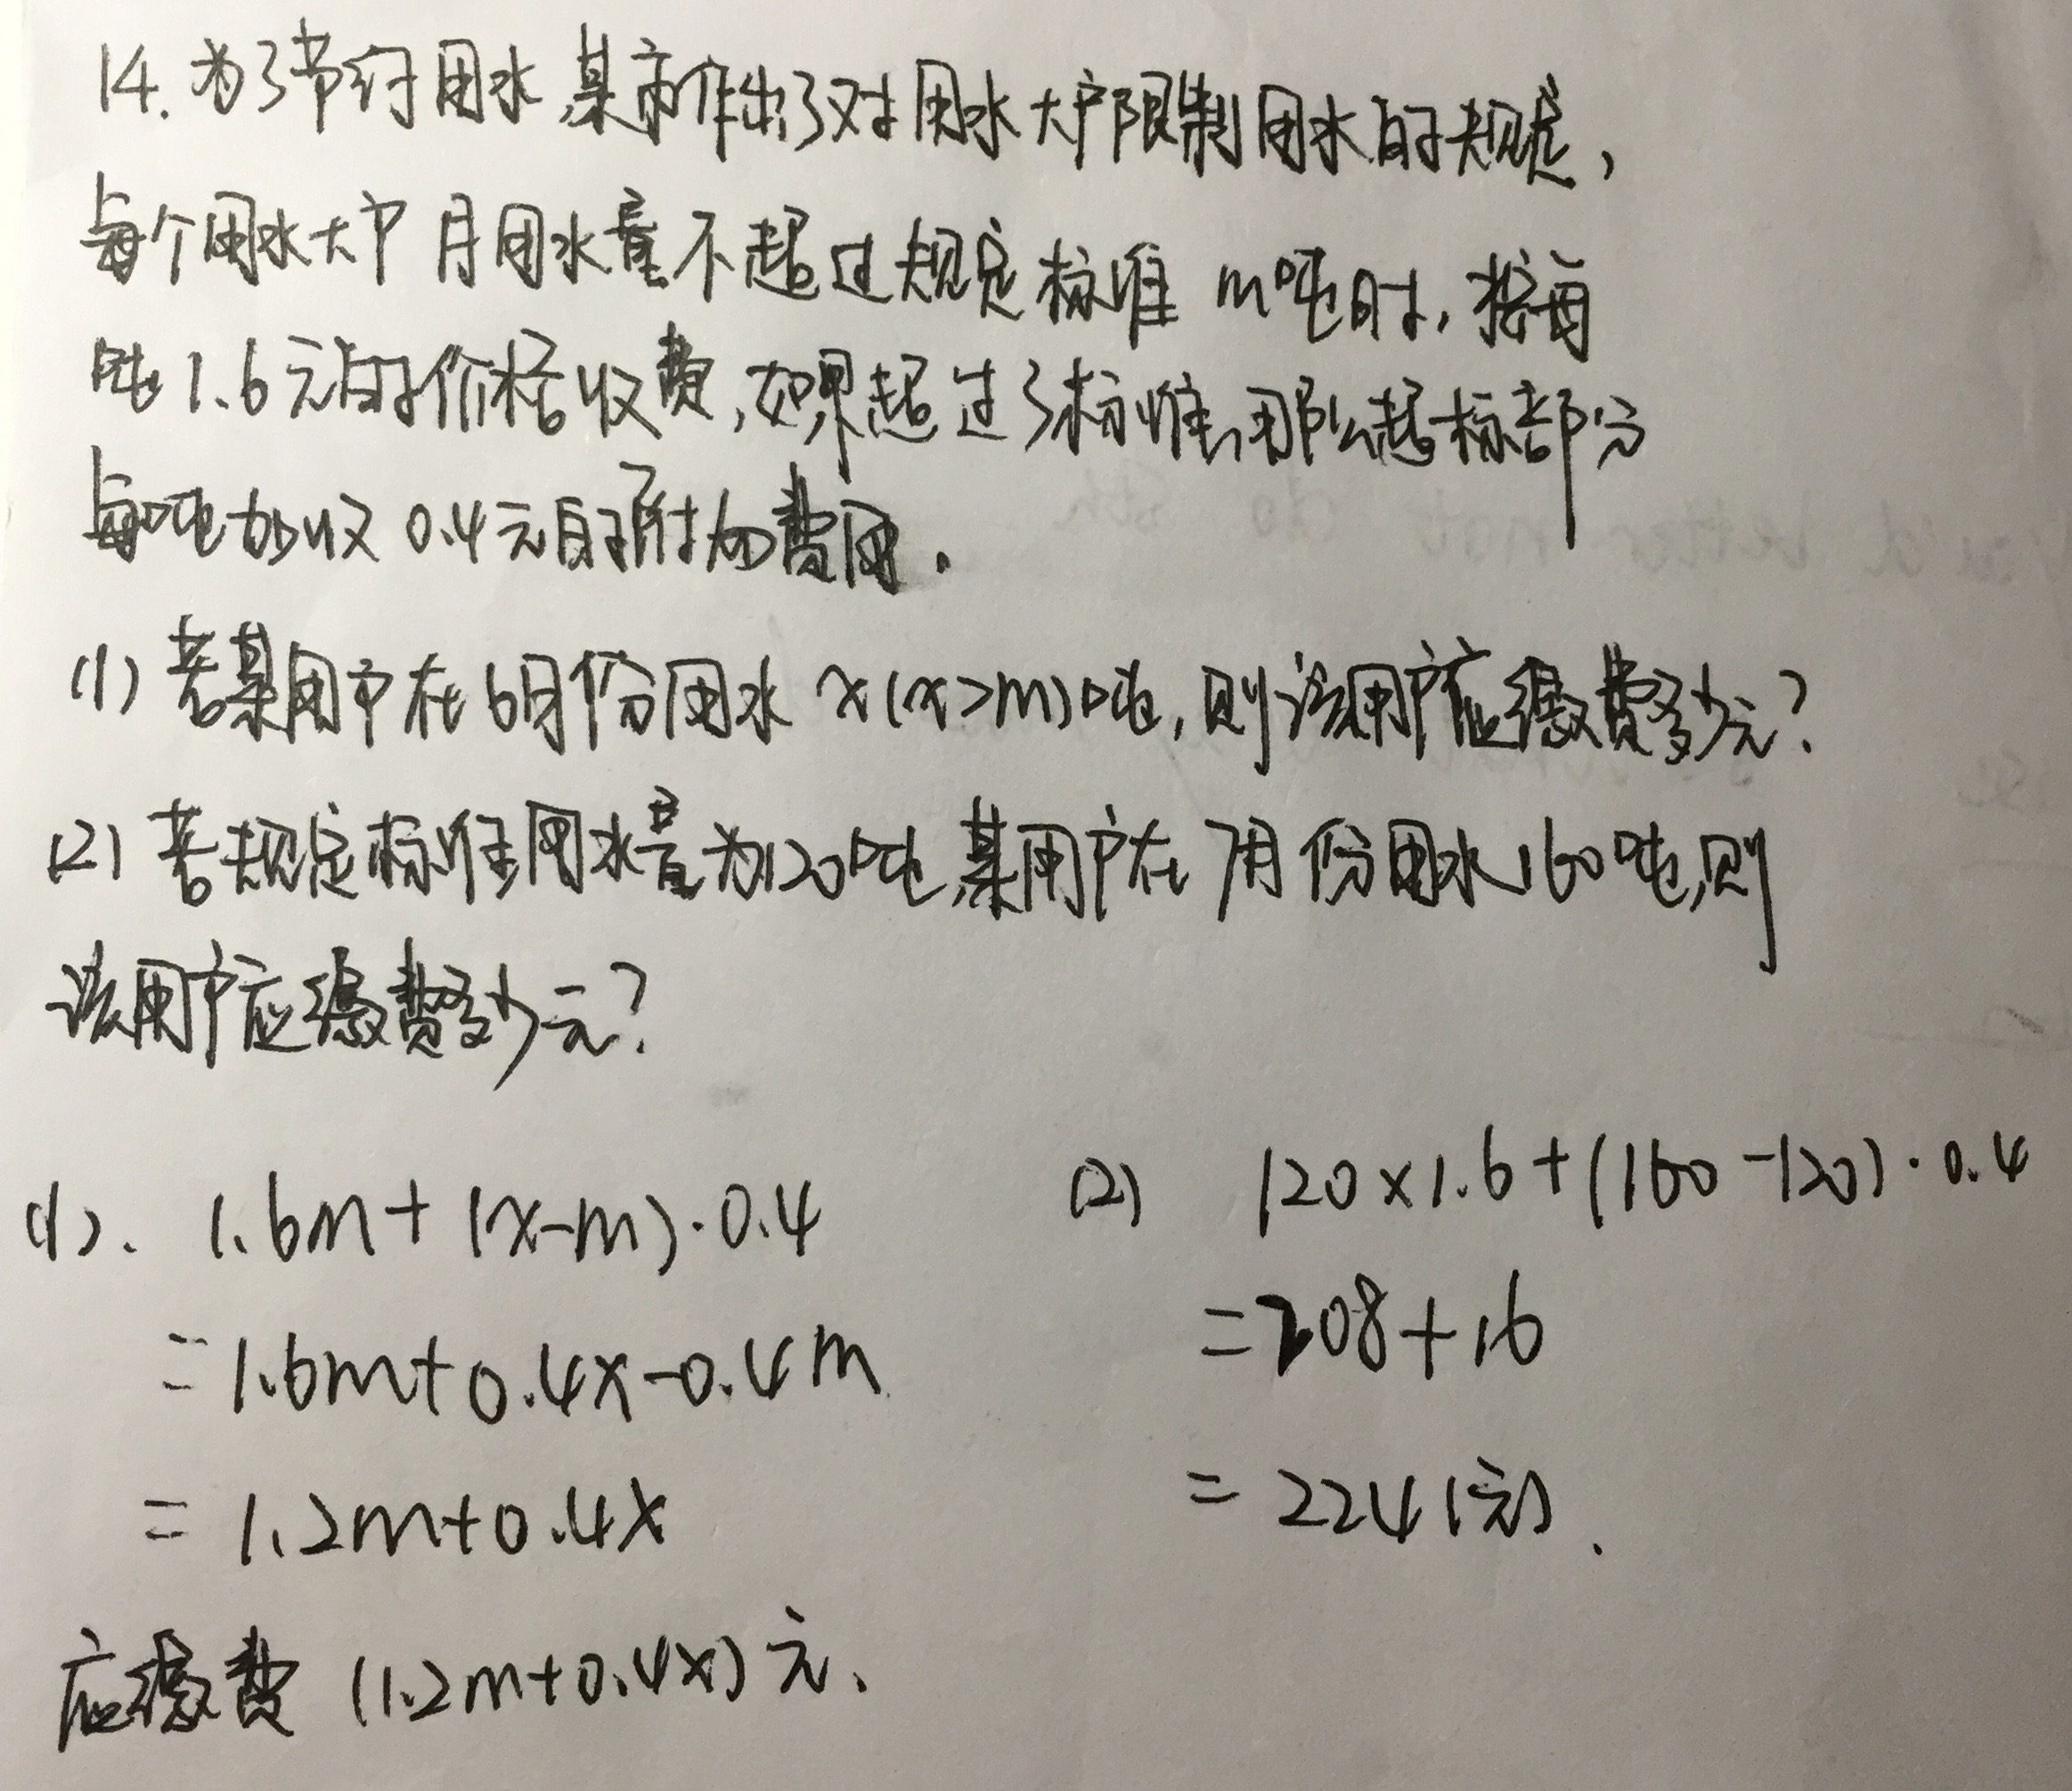 14.为了节约用水,某市作出了对用水大户限制用水的规定,
每个用水大户月用水量不超过规定标准m吨时,按每
吨1.6元的价格收费,如果超过了标准,那么超标部分
每吨加收0.4元的附加费用.
(1)若某用户在6月份用水x(x>m)吨,则该用户应缴费多少元?
(2)若规定标准用水量为120吨,某用户在7月份用水160吨,则
该用户应缴费多少元?
(1). 1.6m+(x-m)·0.4
=1.6m+0.4x-0.4m
=1.2m+0.4x
应缴费(1.2m+0.4x)元.
(2) 120×1.6+(160-120)·0.4
=208+16
=224(元).